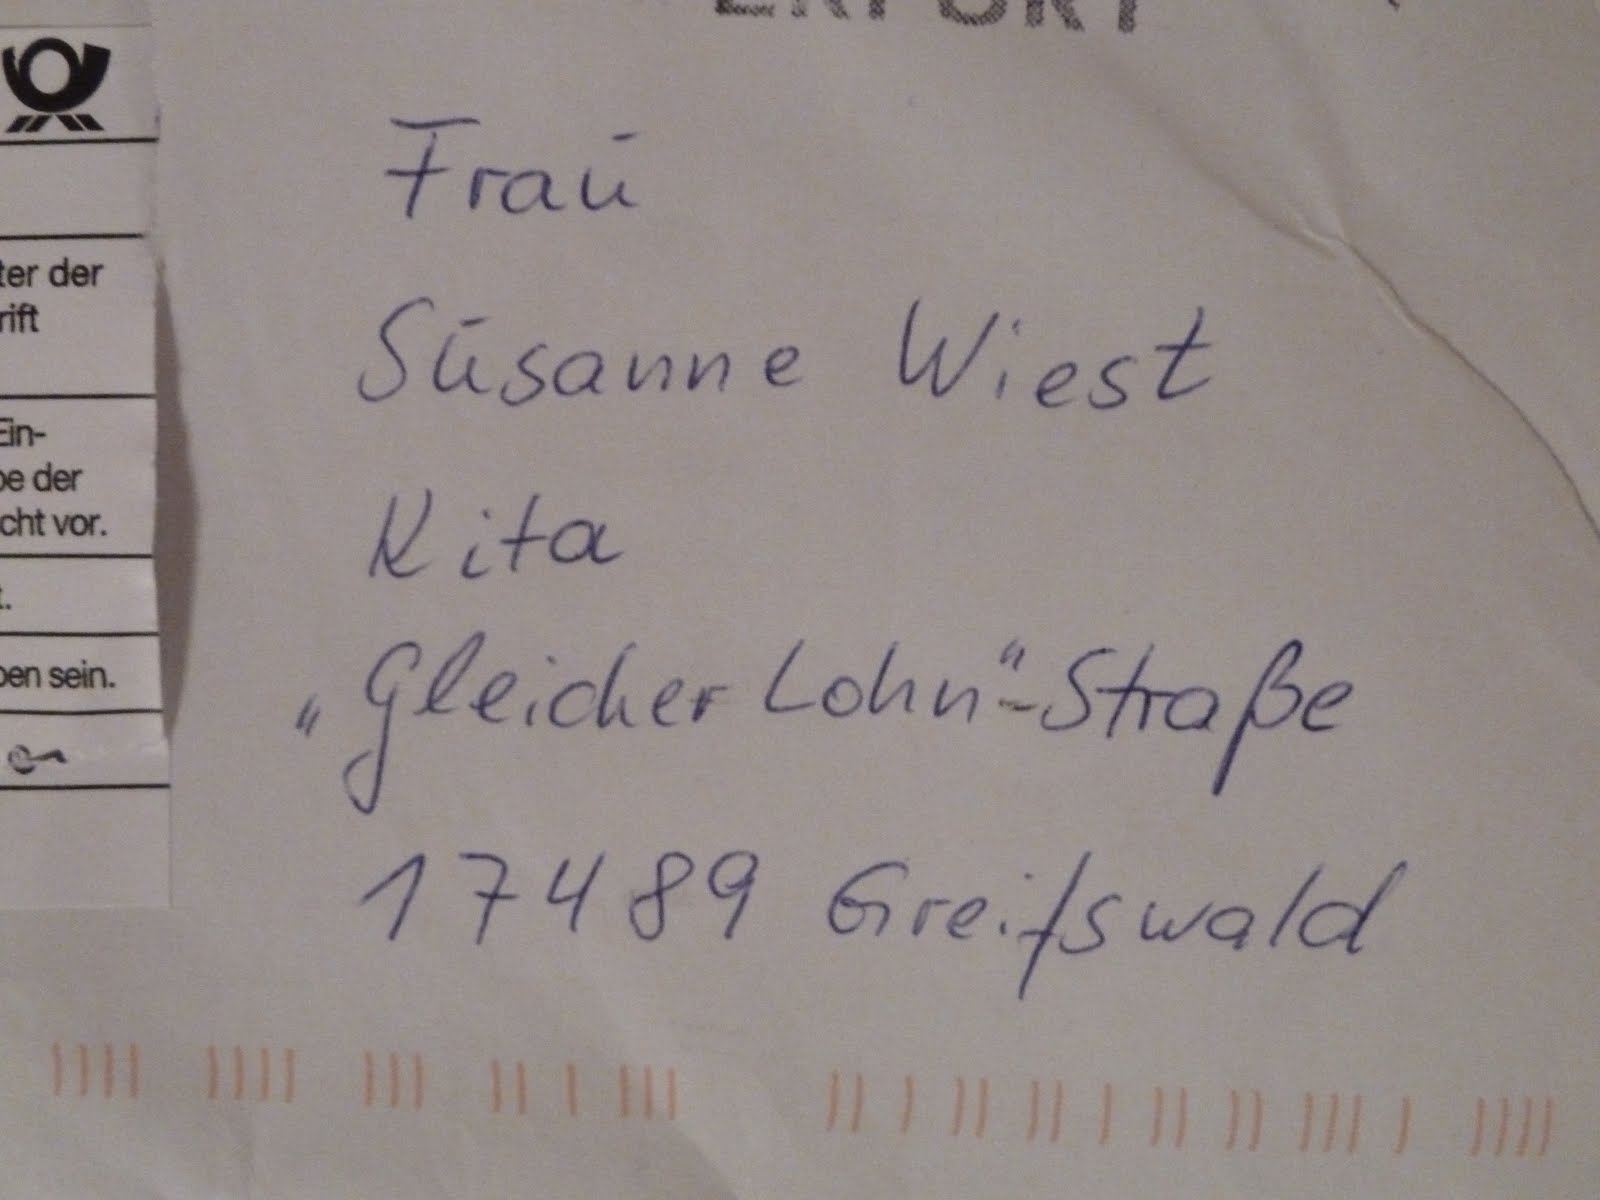 ERFURT
Frau
Susanne Wiest
Kita
„Gleicher Lohn“-Straße
17489 Greifswald
ter der
rift
Ein-
be der
cht vor.
t.
ben sein.